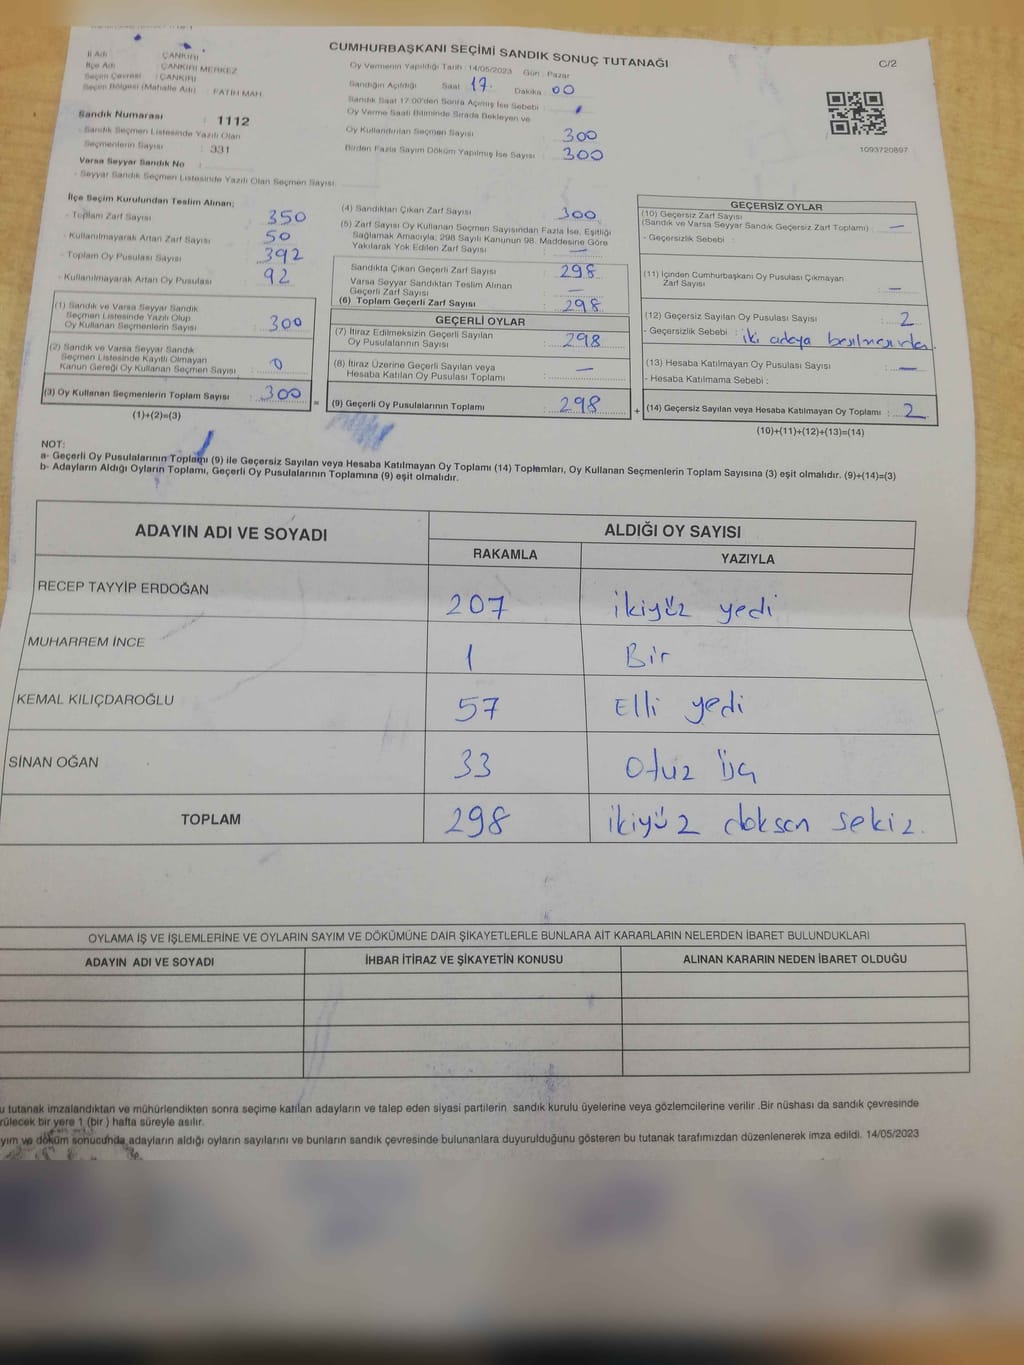 CUMHURBAŞKANI SEÇİMİ SANDIK SONUÇ TUTANAĞI
C/2
İl Adı : ÇANKIRI
İlçe Adı : ÇANKIRI MERKEZ
Seçim Çevresi : ÇANKIRI
Seçim Bölgesi (Mahalle Adı) : FATİH MAH.
Sandık Numarası : 1112
- Sandık Seçmen Listesinde Yazılı Olan
Seçmenlerin Sayısı : 331
Varsa Seyyar Sandık No :
- Seyyar Sandık Seçmen Listesinde Yazılı Olan Seçmen Sayısı:
Oy Vermenin Yapıldığı Tarih : 14/05/2023 Gün : Pazar
Sandığın Açıldığı Saat 17. Dakika : 00
Sandık Saat 17:00'den Sonra Açılmış İse Sebebi :
Oy Verme Saati Bitiminde Sırada Bekleyen ve
Oy Kullandırılan Seçmen Sayısı : 300
Birden Fazla Sayım Döküm Yapılmış İse Sayısı : 300
1093720897
İlçe Seçim Kurulundan Teslim Alınan;
- Toplam Zarf Sayısı : 350
- Kullanılmayarak Artan Zarf Sayısı : 50
- Toplam Oy Pusulası Sayısı : 392
- Kullanılmayarak Artan Oy Pusulası : 92
(1) Sandık ve Varsa Seyyar Sandık
Seçmen Listesinde Yazılı Olup
Oy Kullanan Seçmenlerin Sayısı : 300
(2) Sandık ve Varsa Seyyar Sandık
Seçmen Listesinde Kayıtlı Olmayan
Kanun Gereği Oy Kullanan Seçmen Sayısı : 0
(3) Oy Kullanan Seçmenlerin Toplam Sayısı : 300
(1)+(2)=(3)
(4) Sandıktan Çıkan Zarf Sayısı : 300
(5) Zarf Sayısı Oy Kullanan Seçmen Sayısından Fazla İse, Eşitliği
Sağlamak Amacıyla, 298 Sayılı Kanunun 98. Maddesine Göre
Yakılarak Yok Edilen Zarf Sayısı : —
Sandıkta Çıkan Geçerli Zarf Sayısı : 298
Varsa Seyyar Sandıktan Teslim Alınan
Geçerli Zarf Sayısı : —
(6) Toplam Geçerli Zarf Sayısı : 298
GEÇERLİ OYLAR
(7) İtiraz Edilmeksizin Geçerli Sayılan
Oy Pusulalarının Sayısı : 298
(8) İtiraz Üzerine Geçerli Sayılan veya
Hesaba Katılan Oy Pusulası Toplamı : —
= (9) Geçerli Oy Pusulalarının Toplamı : 298
GEÇERSİZ OYLAR
(10) Geçersiz Zarf Sayısı
(Sandık ve Varsa Seyyar Sandık Geçersiz Zarf Toplamı) : —
- Geçersizlik Sebebi :
(11) İçinden Cumhurbaşkanı Oy Pusulası Çıkmayan
Zarf Sayısı : —
(12) Geçersiz Sayılan Oy Pusulası Sayısı : 2
- Geçersizlik Sebebi : iki adaya basılmasından
(13) Hesaba Katılmayan Oy Pusulası Sayısı : —
- Hesaba Katılmama Sebebi :
+ (14) Geçersiz Sayılan veya Hesaba Katılmayan Oy Toplamı : 2
(10)+(11)+(12)+(13)=(14)
NOT:
a- Geçerli Oy Pusulalarının Toplamı (9) ile Geçersiz Sayılan veya Hesaba Katılmayan Oy Toplamı (14) Toplamları, Oy Kullanan Seçmenlerin Toplam Sayısına (3) eşit olmalıdır. (9)+(14)=(3)
b- Adayların Aldığı Oyların Toplamı, Geçerli Oy Pusulalarının Toplamına (9) eşit olmalıdır.
ADAYIN ADI VE SOYADI ALDIĞI OY SAYISI
RAKAMLA YAZIYLA
RECEP TAYYİP ERDOĞAN 207 ikiyüz yedi
MUHARREM İNCE 1 Bir
KEMAL KILIÇDAROĞLU 57 Elli yedi
SİNAN OĞAN 33 Otuz üç
TOPLAM 298 ikiyüz doksan sekiz.
OYLAMA İŞ VE İŞLEMLERİNE VE OYLARIN SAYIM VE DÖKÜMÜNE DAİR ŞİKAYETLERLE BUNLARA AİT KARARLARIN NELERDEN İBARET BULUNDUKLARI
ADAYIN ADI VE SOYADI İHBAR İTİRAZ VE ŞİKAYETİN KONUSU ALINAN KARARIN NEDEN İBARET OLDUĞU
u tutanak imzalandıktan ve mühürlendikten sonra seçime katılan adayların ve talep eden siyasi partilerin sandık kurulu üyelerine veya gözlemcilerine verilir .Bir nüshası da sandık çevresinde
rülecek bir yere 1 (bir ) hafta süreyle asılır.
yım ve döküm sonucunda adayların aldığı oyların sayılarını ve bunların sandık çevresinde bulunanlara duyurulduğunu gösteren bu tutanak tarafımızdan düzenlenerek imza edildi. 14/05/2023